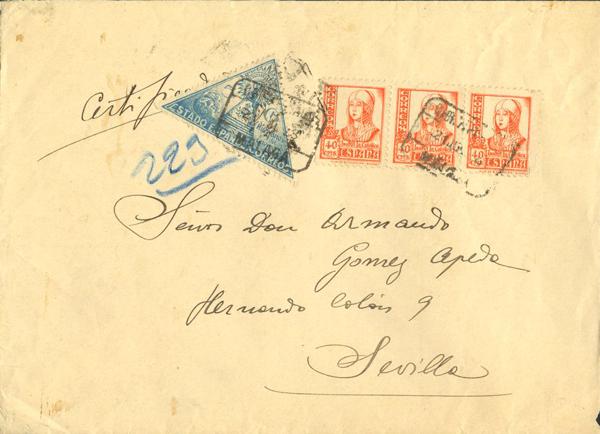 Certificado
ESTADO ESPAÑOL
CORREOS
MALAGA
40 CTS ESPAÑA
40 CTS ESPAÑA
40 CTS ESPAÑA
MALAGA
223
Señor Don Armando
Gomez Apeda
Hernando Colón 9
Sevilla